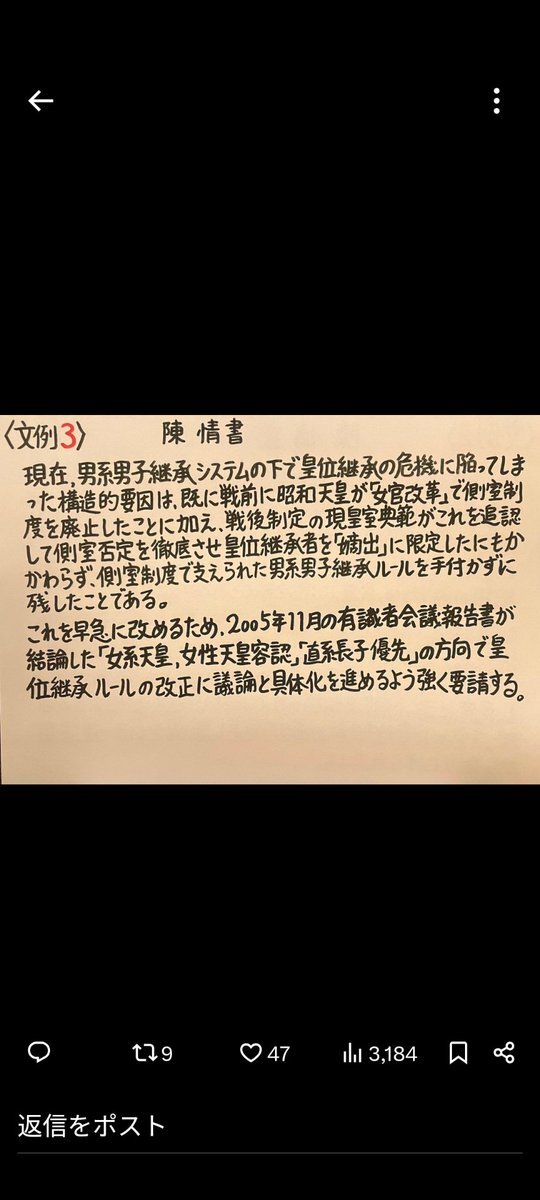 〈文例3〉 陳情書
現在,男系男子継承システムの下で皇位継承の危機に陥ってしま
った構造的要因は、既に戦前に昭和天皇が「女官改革」で側室制
度を廃止したことに加え、戦後制定の現皇室典範がこれを追認
して側室否定を徹底させ皇位継承者を「嫡出」に限定したにもか
かわらず、側室制度で支えられた男系男子継承ルールを手付かずに
残したことである。
これを早急に改めるため、2005年11月の有識者会議報告書が
結論した「女系天皇,女性天皇容認」,「直系長子優先」の方向で皇
位継承ルールの改正に議論と具体化を進めるよう強く要請する。
9 47 3,184
返信をポスト